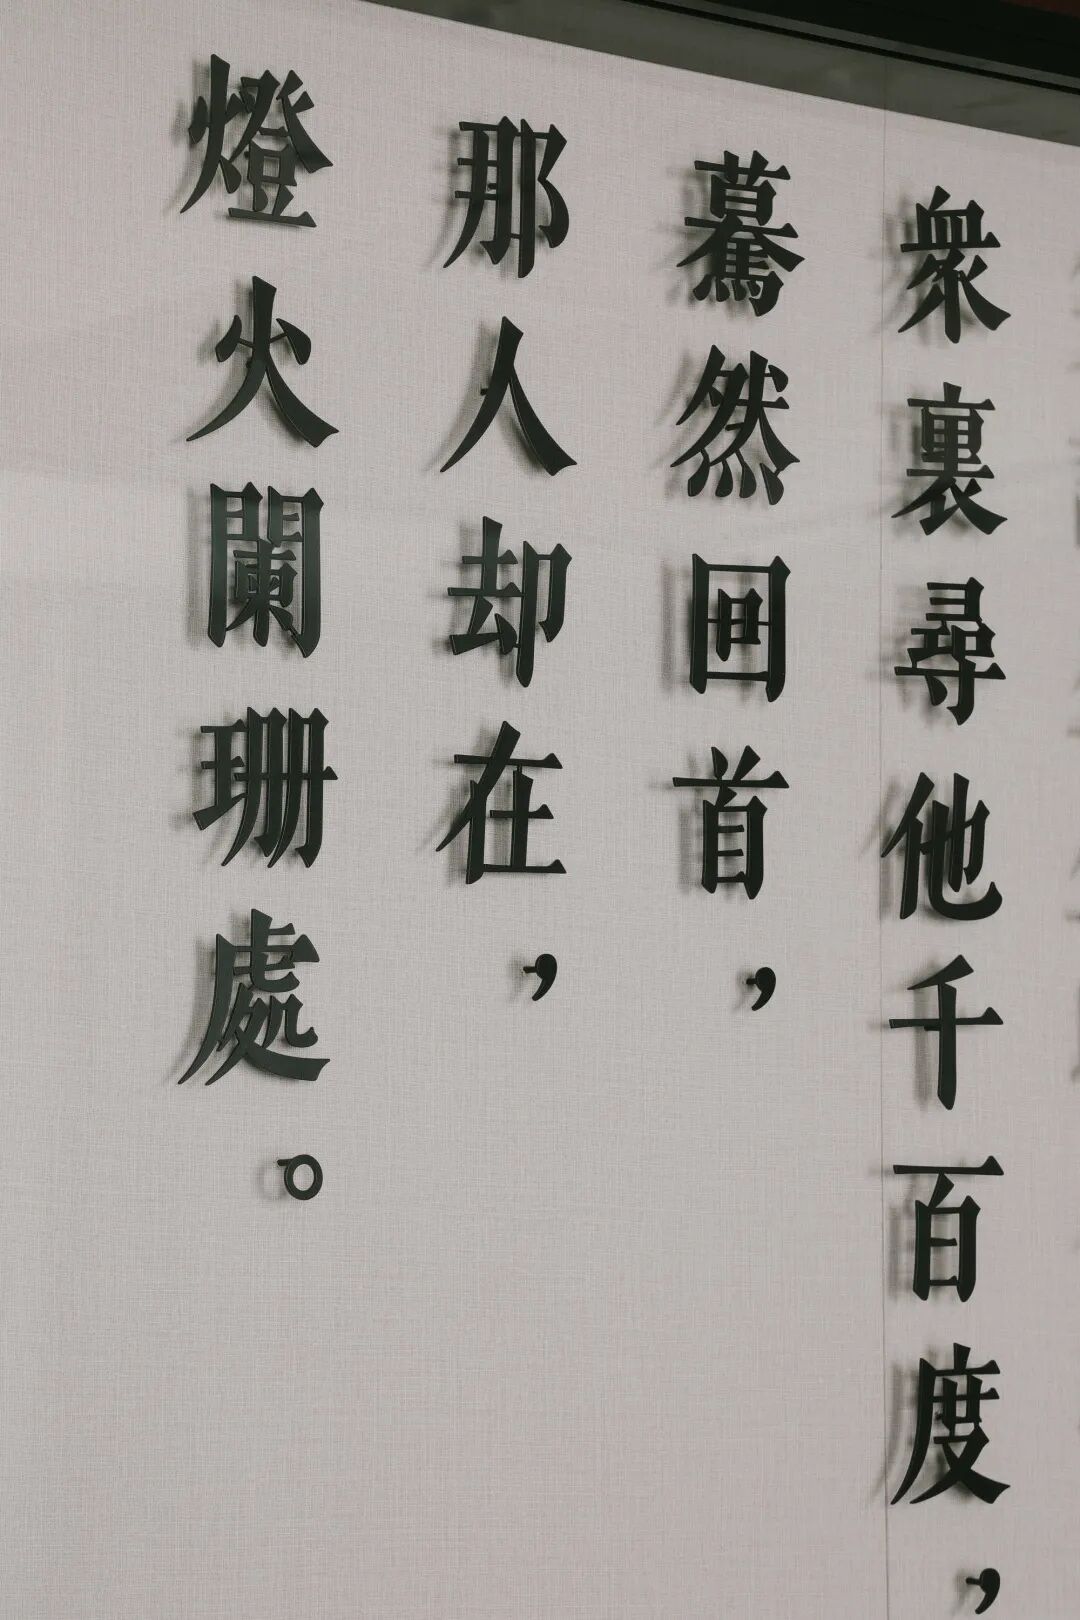 衆裏尋他千百度，
驀然回首，
那人却在，
燈火闌珊處。